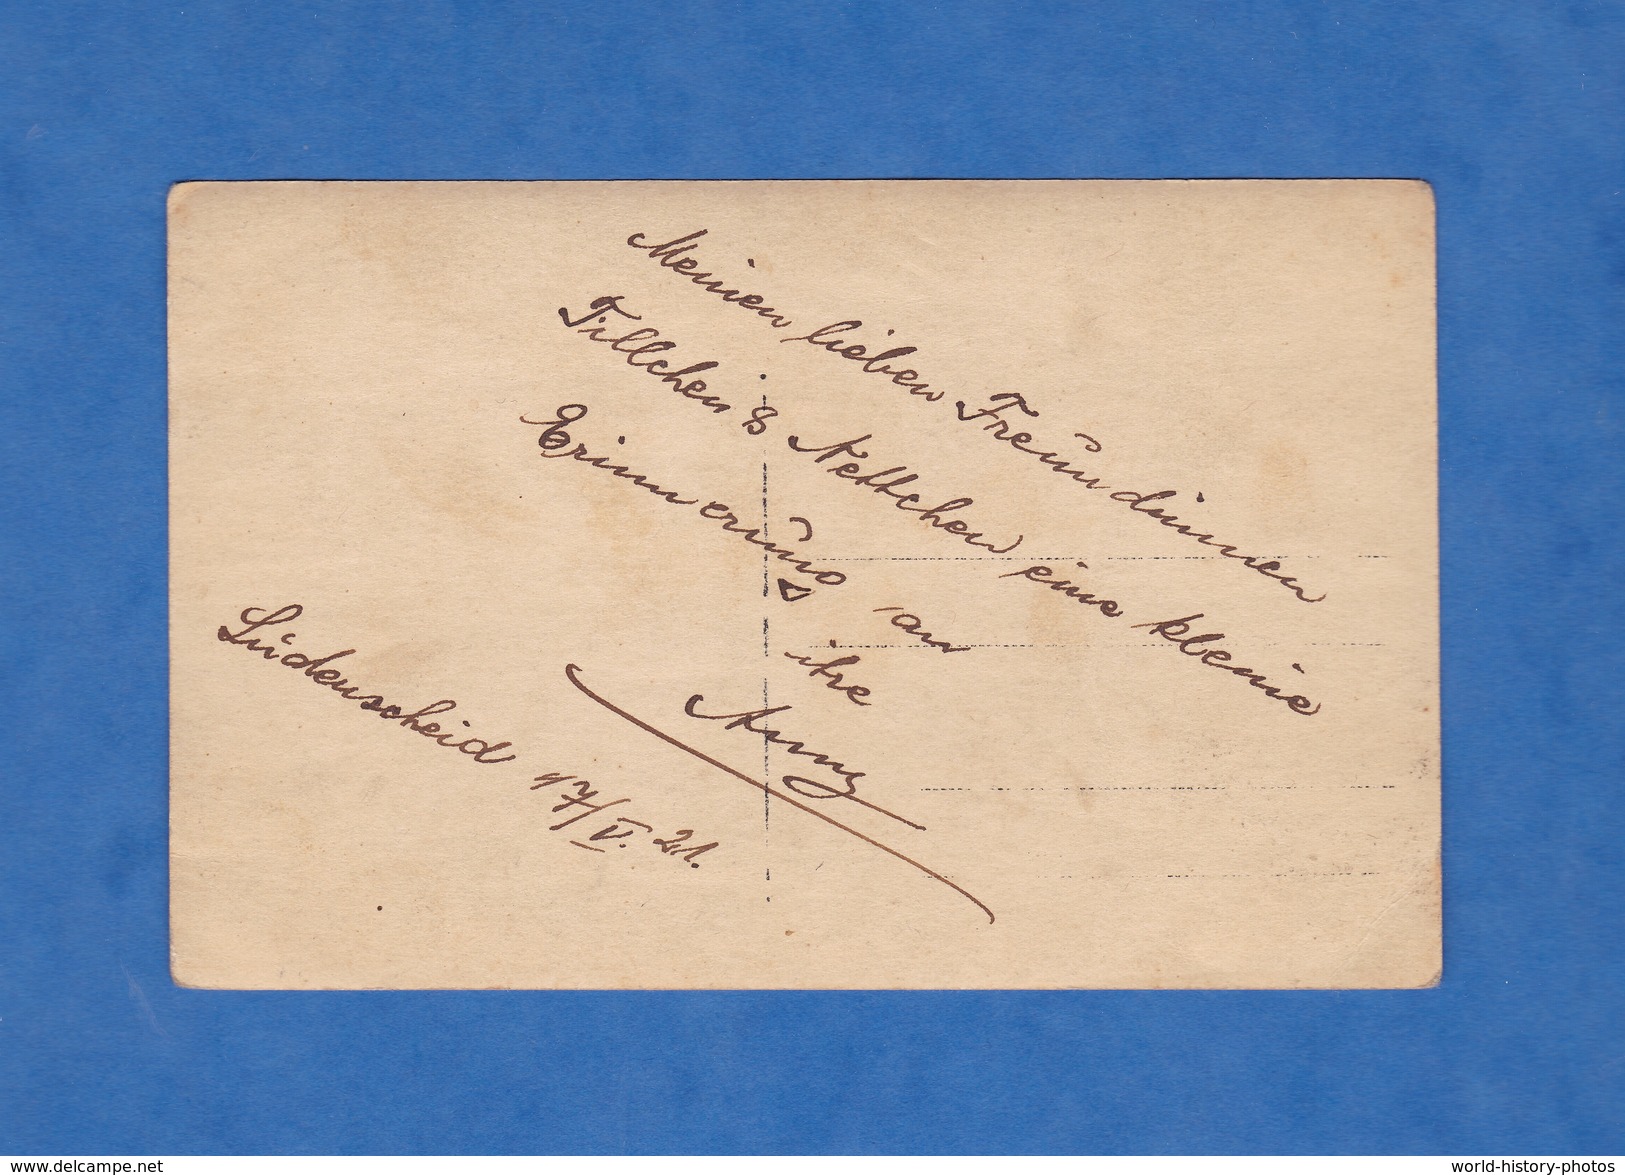 Meinen lieben Freundinnen
Tillchen & Nettchen eine kleine
Erinnerung an
ihre
Anny
Lüdenscheid 17/V. 21.
www.delcampe.net
world-history-photos